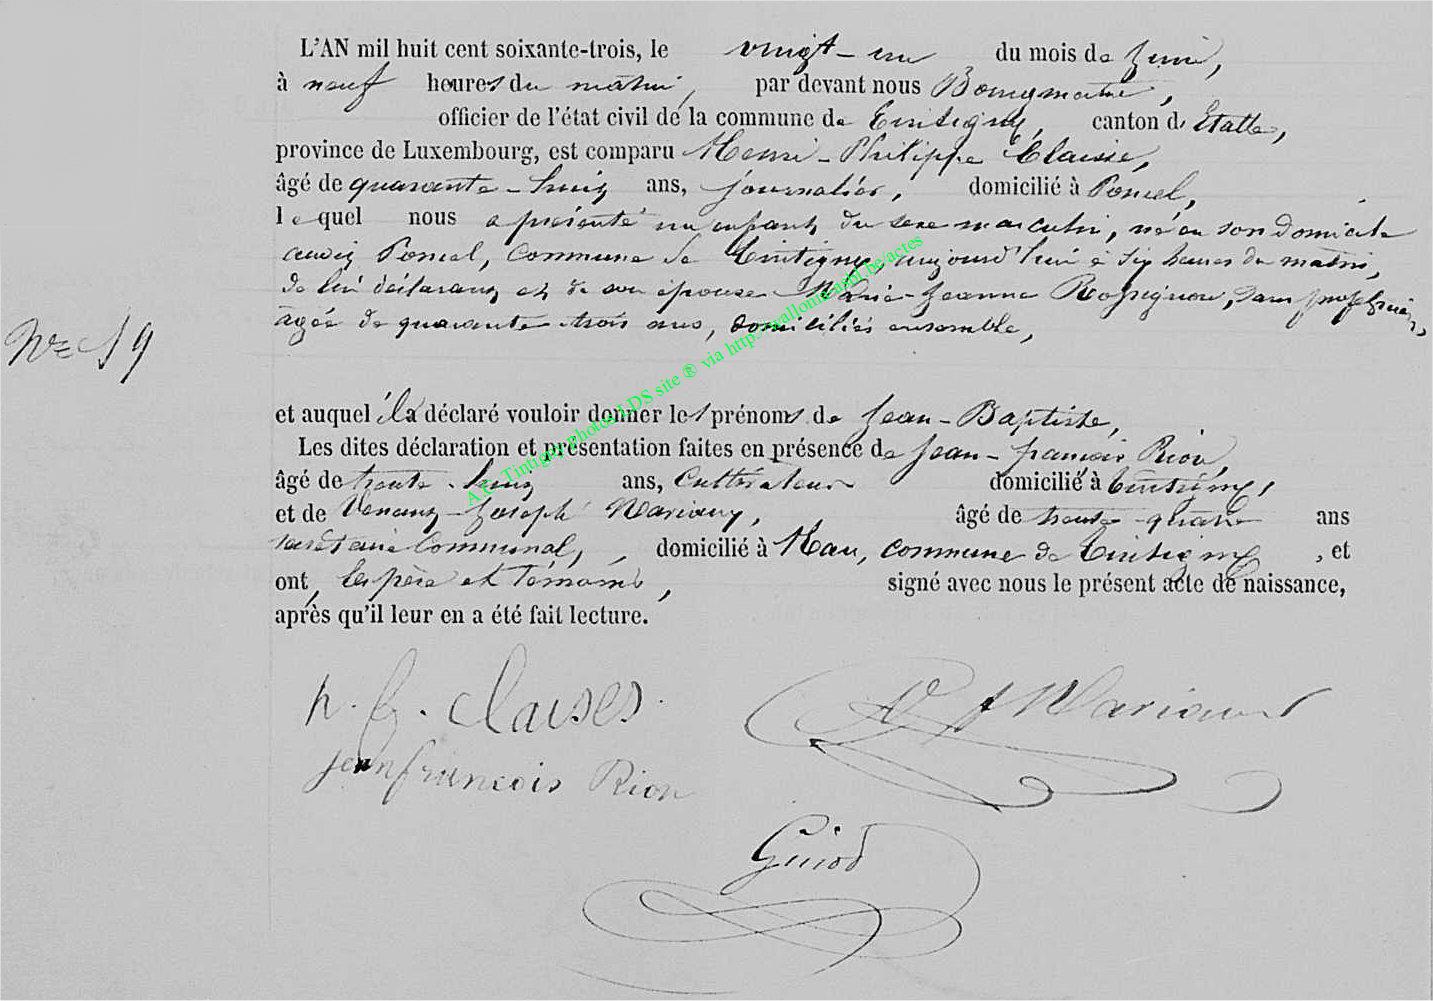 L'AN mil huit cent soixante-trois, le vingt-un du mois de Juin,
à neuf heures du matin, par devant nous Bourgmestre,
officier de l'état civil de la commune de Tintigny, canton d'Etalle,
province de Luxembourg, est comparu Henri-Philippe Claisse,
âgé de quarante-huit ans, journalier, domicilié à Poncel,
lequel nous a présenté un enfant du sexe masculin, né en son domicile
audit Poncel, commune de Tintigny, aujourd'hui à six heures du matin,
de lui déclarant et de son épouse Marie-Jeanne Rossignon, sans profession,
âgée de quarante-trois ans, domiciliés ensemble,
N° 19
et auquel il a déclaré vouloir donner les prénoms de Jean-Baptiste,
Les dites déclaration et présentation faites en présence de Jean-françois Rion,
âgé de trente-huit ans, Cultivateur domicilié à Tintigny,
et de Venant-Joseph Mariany, âgé de trente-quatre ans
secrétaire Communal, domicilié à Han, commune de Tintigny, et
ont, les père et témoins, signé avec nous le présent acte de naissance,
après qu'il leur en a été fait lecture.
A.C. Tintigny Photos LDS site ® via
h. f. claises.
jean francois Rion
Guiod